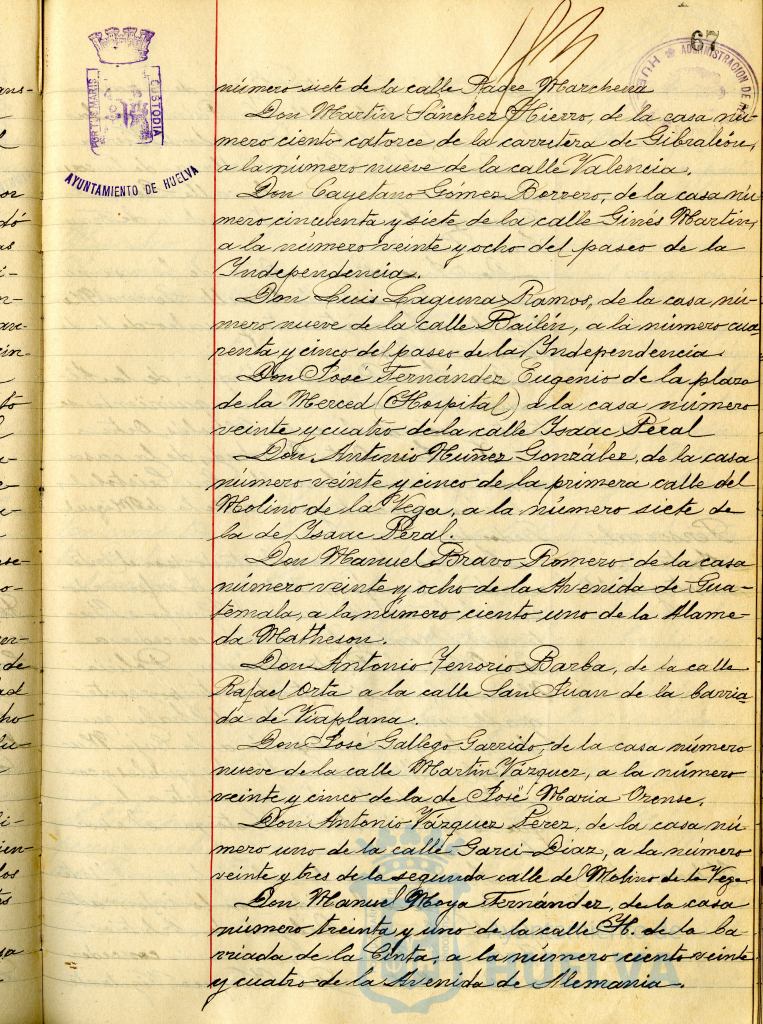 67
PORTUS MARIS
CUSTODIA
AYUNTAMIENTO DE HUELVA
ADMINISTRACION DE
HUE
número siete de la calle Padre Marchena
Don Martín Sánchez Hierro, de la casa nú-
mero ciento catorce de la carretera de Gibraleón,
a la número nueve de la calle Valencia.
Don Cayetano Gómez Borrero, de la casa nú-
mero cincuenta y siete de la calle Ginés Martín,
a la número veinte y ocho del paseo de la
Independencia.
Don Luis Laguna Ramos, de la casa nú-
mero nueve de la calle Bailén, a la número cua-
renta y cinco del paseo de la Independencia.
Don José Fernández Eugenio de la plaza
de la Merced (Hospital) a la casa número
veinte y cuatro de la calle Isaac Peral
Don Antonio Nuñez González, de la casa
número veinte y cinco de la primera calle del
Molino de la Vega, a la número siete de
la de Isaac Peral.
Don Manuel Bravo Romero de la casa
número veinte y ocho de la Avenida de Gua-
temala, a la número ciento uno de la Alame-
da Matheson.
Don Antonio Tenorio Barba, de la calle
Rafael Orta a la calle San Juan de la barria-
da de Viaplana.
Don José Gallego Garrido, de la casa número
nueve de la calle Martín Vázquez, a la número
veinte y cinco de la de José María Orense.
Don Antonio Vázquez Pérez, de la casa nú-
mero uno de la calle Garci-Diaz, a la número
veinte y tres de la segunda calle del Molino de la Vega.
Don Manuel Moya Fernández, de la casa
número treinta y uno de la calle H. de la ba-
rriada de la Cinta, a la número ciento veinte
y cuatro de la Avenida de Alemania.
HUELVA